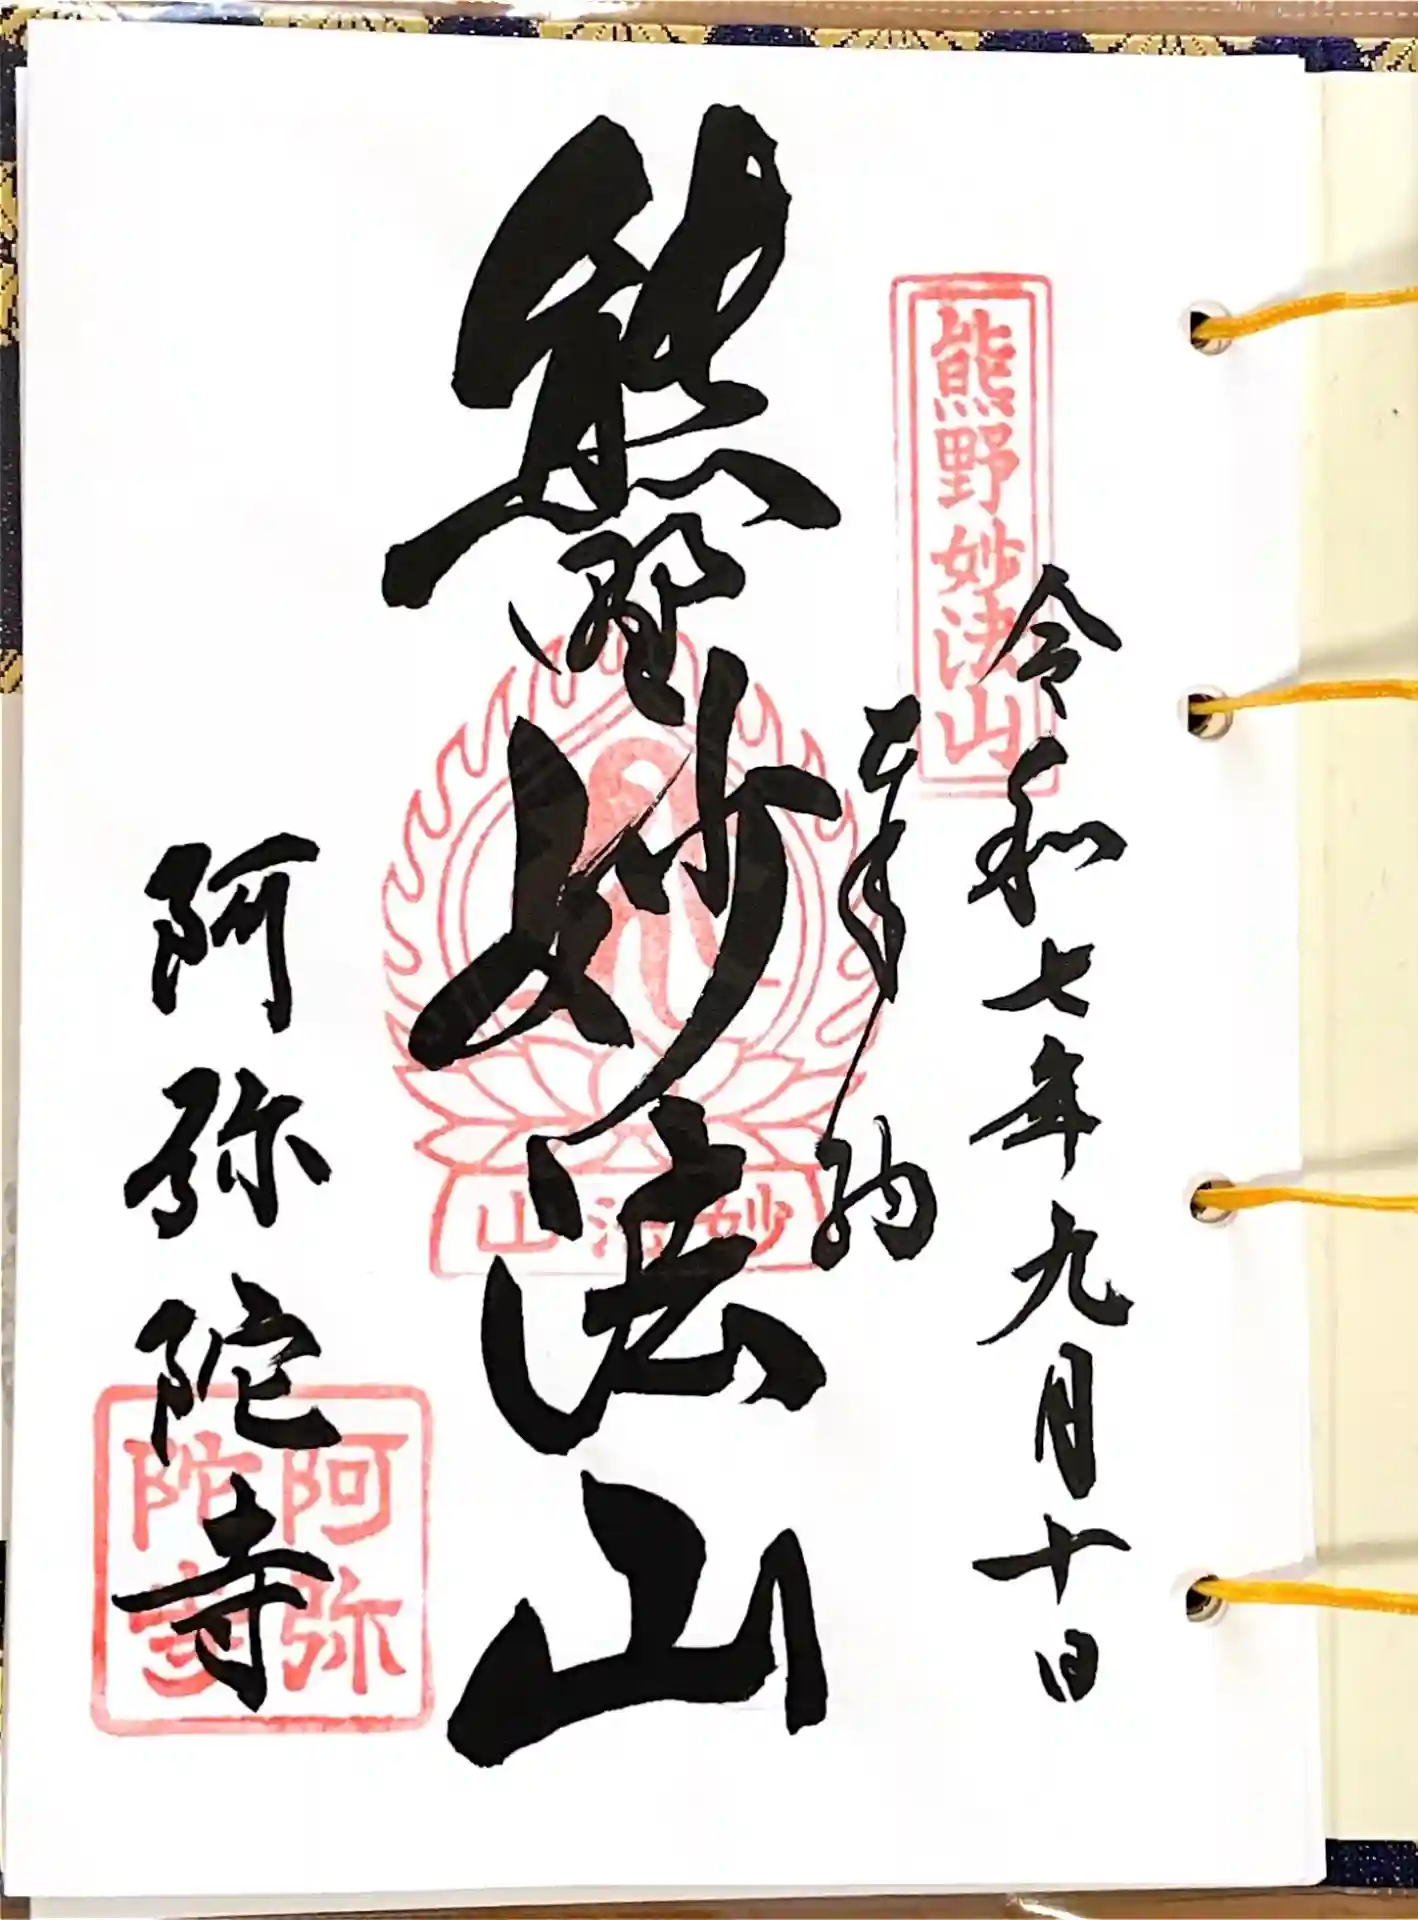 熊野妙法山
令和七年九月十日
奉納
熊野妙法山
妙法山
阿弥陀寺
阿弥陀寺